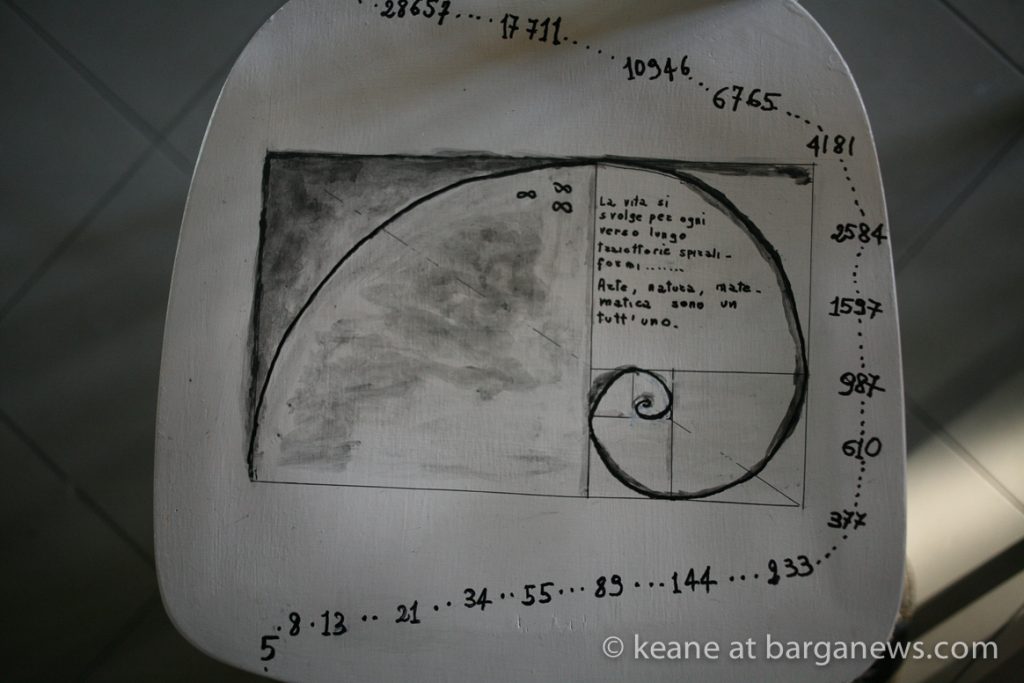 28657
17711
10946
6765
4181
2584
1597
987
610
377
233
144
89
55
34
21
13
8
5
∞ ∞
∞
La vita si
svolge per ogni
verso lungo
traiettorie spirali-
formi.......
Arte, natura, mate-
matica sono un
tutt'uno.
© keane at barganews.com